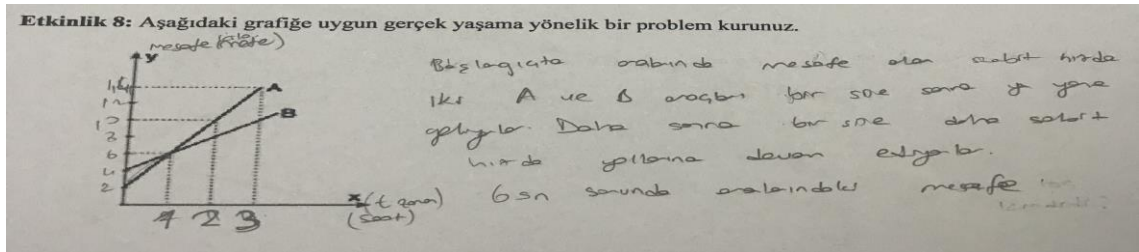 Etkinlik 8: Aşağıdaki grafiğe uygun gerçek yaşama yönelik bir problem kurunuz.
mesafe
y
14
12
10
8
6
4
2
A
B
1 2 3
x (t zaman)
(Saat)
Başlangıçta arabında mesafe olan sabit hızda
iki A ve B araçları bir süre sonra yan yana
geliyorlar. Daha sonra bir süre daha sabit
hızda yollarına devam ediyorlar.
6 sn sonunda aralarındaki mesafe